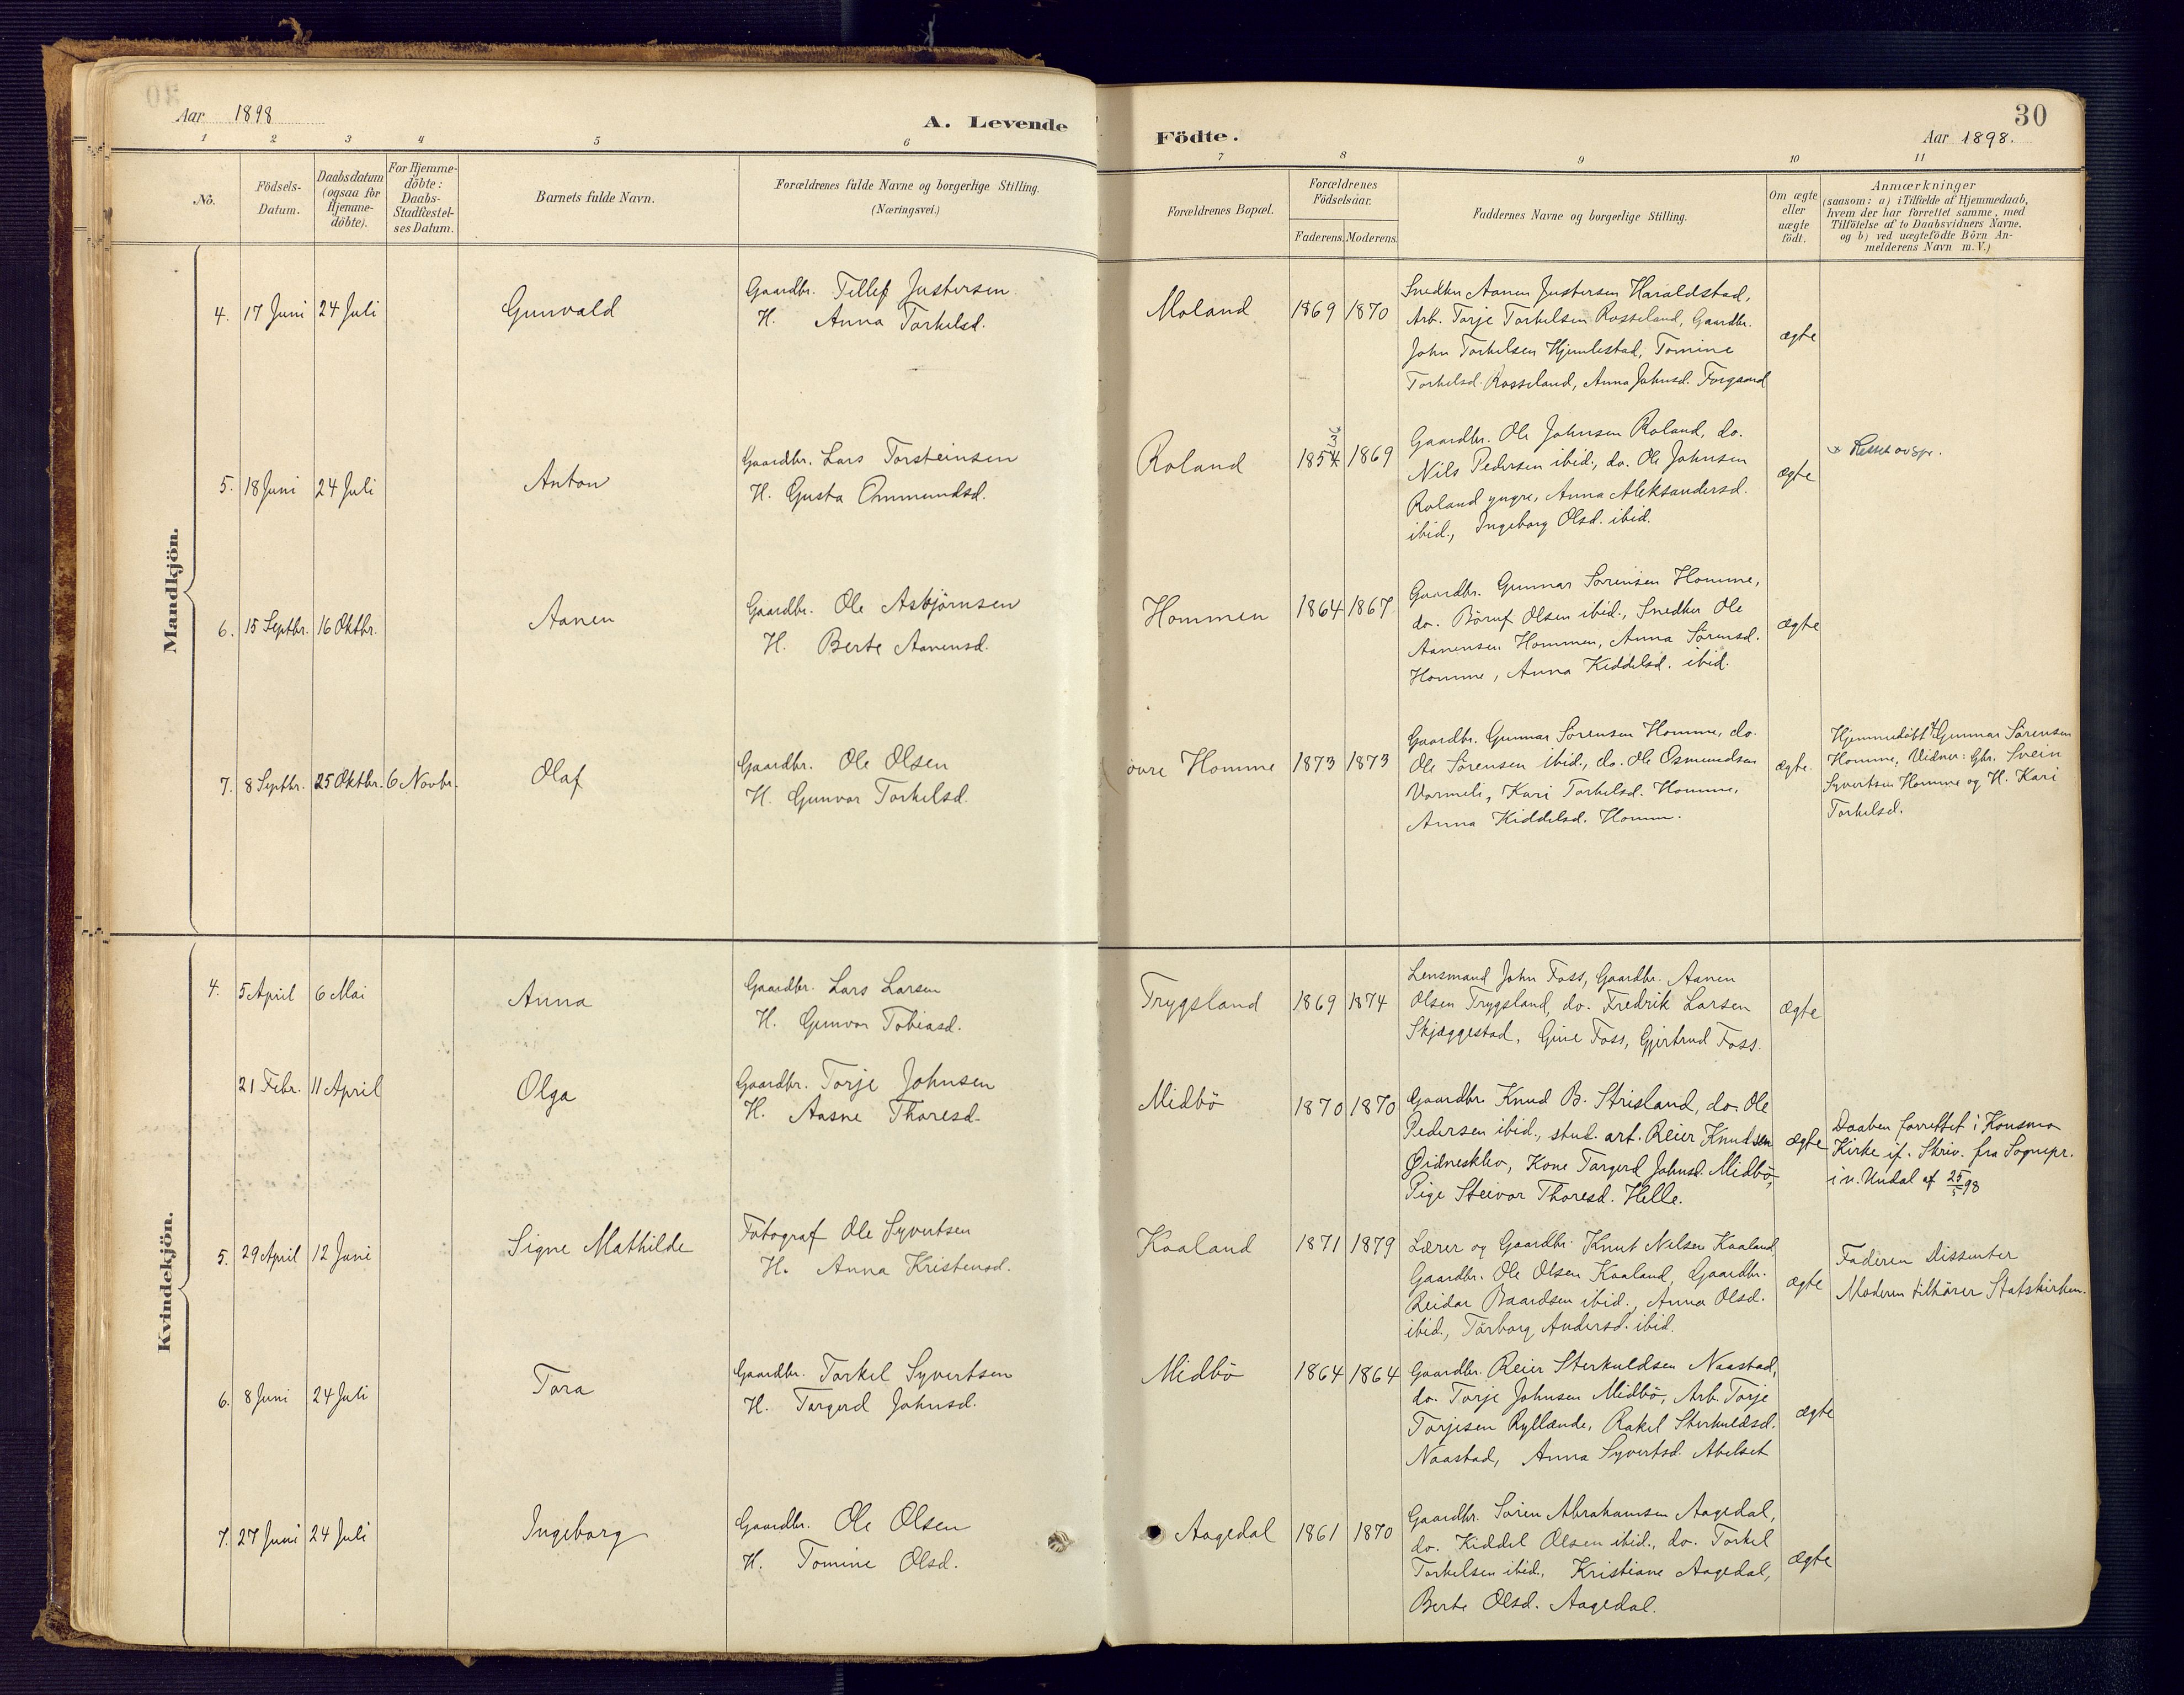 Aar 1898
A. Levende
Födte.
30
Aar 1898.
1 2 3 4 5 6 7 8 9 10 11
No.
Födsels-
Datum.
Daabsdatum
(ogsaa for
Hjemme-
döbte).
For Hjemme-
döbte:
Daabs-
Stadfæstel-
ses Datum.
Barnets fulde Navn.
Forældrenes fulde Navne og borgerlige Stilling.
(Næringsvei.)
Forældrenes Bopæl.
Forældrenes
Födselsaar.
Faderens. Moderens.
Faddernes Navne og borgerlige Stilling.
Om ægte
eller
uægte
födt.
Anmærkninger
(saasom: a) i Tilfælde af Hjemmedaab,
hvem der har forrettet samme, med
Tilföielse af to Daabsvidners Navne,
og b) ved uægtefödte Börn An-
melderens Navn m. V.)
Mandkjön.
4. 17 Juni 24 Juli
Gunvald
Gaardbr. Tellef Justersen
H. Anna Torkelsd.
Moland 1869 1870
Snedker Aanen Justersen Haraldstad,
Arb. Torje Torkelsen Rosseland, Gaardbr.
John Torkelsen Hjemlestad, Tomine
Torkelsd. Rosseland, Anna Johnsd. Torgsand
ægte
5. 18 Juni 24 Juli
Anton
Gaardbr. Lars Torsteinsen
H. Gusta Ommundsd.
Roland 1854 1869
Gaardbr. Ole Johnsen Roland, do.
Nils Pedersen ibid., do. Ole Johnsen
Roland yngre, Anna Aleksandersd.
ibid., Ingeborg Olsd. ibid.
ægte
6. 15 Septbr. 16 Oktbr.
Aanen
Gaardbr. Ole Asbjörnsen
H. Berte Aanensd.
Hommen 1864 1867
Gaardbr. Gunnar Sörensen Homme,
do. Böruf Olsen ibid., Snedker Ole
Aanensen Hommen, Anna Sörensd.
Homme, Anna Kiddelsd. ibid.
ægte
7. 8 Septbr. 25 Oktbr. 6 Novbr.
Olaf
Gaardbr. Ole Olsen
H. Gunvor Torkelsd.
övre Homme 1873 1873
Gaardbr. Gunnar Sörensen Homme, do.
Ole Sörensen ibid., do. Ole Osmundsen
Vormeli, Kari Torkelsd. Homme,
Anna Kiddelsd. Homme.
ægte.
Hjemmedöbt af Gunnar Sörensen
Homme, Vidner: Gbr. Svein
Syvertsen Homme og H. Kari
Torkelsd.
Kvindekjön.
4. 5 April 6 Mai
Anna
Gaardbr. Lars Larsen
H. Gunvor Tobiasd.
Trygsland 1869 1874
Lensmand John Foss, Gaardbr. Aanen
Olsen Trygsland, do. Fredrik Larsen
Skjæggestad, Gine Foss, Gjertrud Foss.
ægte
21 Febr. 11 April
Olga
Gaardbr. Torje Johnsen
H. Aasne Thoresd.
Midbö 1870 1870
Gaardbr Knud B. Strisland, do. Ole
Pedersen ibid., stud. art. Reier Knudsen
Øidneskleo, Kone Targerd Johnsd. Midbö,
Pige Steivor Thoresd. Helle.
ægte
Daaben forrettet i Konsmo
Kirke if. Skriv. fra Sognepr.
i n. Undal af 25/5 98
5. 29 April 12 Juni
Signe Mathilde
Fotograf Ole Syvertsen
H. Anna Kristensd.
Kaaland 1871 1879
Lærer og Gaardbr. Knut Nilsen Kaaland
Gaardbr. Ole Olsen Kaaland, Gaardbr.
Reidar Baardsen ibid., Anna Olsd.
ibid., Törborg Andersd. ibid.
ægte
Faderen Dissenter
Moderen tilhører Statskirken.
6. 8 Juni 24 Juli
Tora
Gaardbr. Torkel Syvertsen
H. Targerd Johnsd.
Midbö 1864 1864
Gaardbr. Reier Sterkuldsen Naastad,
do. Torje Johnsen Midbö, Arb. Torje
Torjesen Ryllande, Rakel Sterkuldsd.
Naastad, Anna Syvertsd. Abelset
ægte
7. 27 Juni 24 Juli
Ingeborg
Gaardbr. Ole Olsen
H. Tomine Olsd.
Aagedal 1861 1870
Gaardbr. Sören Abrahamsen Aagedal,
do. Kiddel Olsen ibid., do. Torkel
Torkelsen ibid., Kristiane Aagedal,
Berte Olsd. Aagedal.
ægte